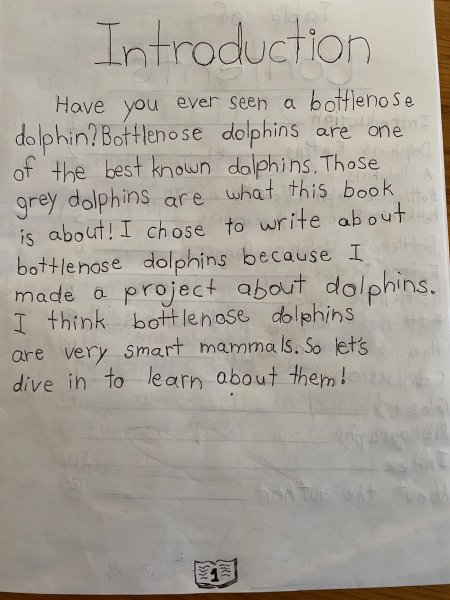 Introduction
Have you ever seen a bottlenose
dolphin? Bottlenose dolphins are one
of the best known dolphins. Those
grey dolphins are what this book
is about! I chose to write about
bottlenose dolphins because I
made a project about dolphins.
I think bottlenose dolphins
are very smart mammals. So let's
dive in to learn about them!
1